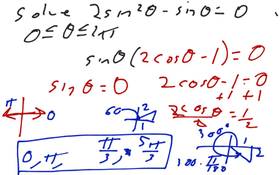 solve 2sin²θ - sinθ = 0
0 ≤ θ ≤ 2π
sinθ (2cosθ - 1) = 0
sinθ = 0 2cosθ - 1 = 0
+1 +1
π 0 60 2 1 2cosθ/2 = 1/2
300° 2 1
0, π, π/3, 5π/3 300 · π/180